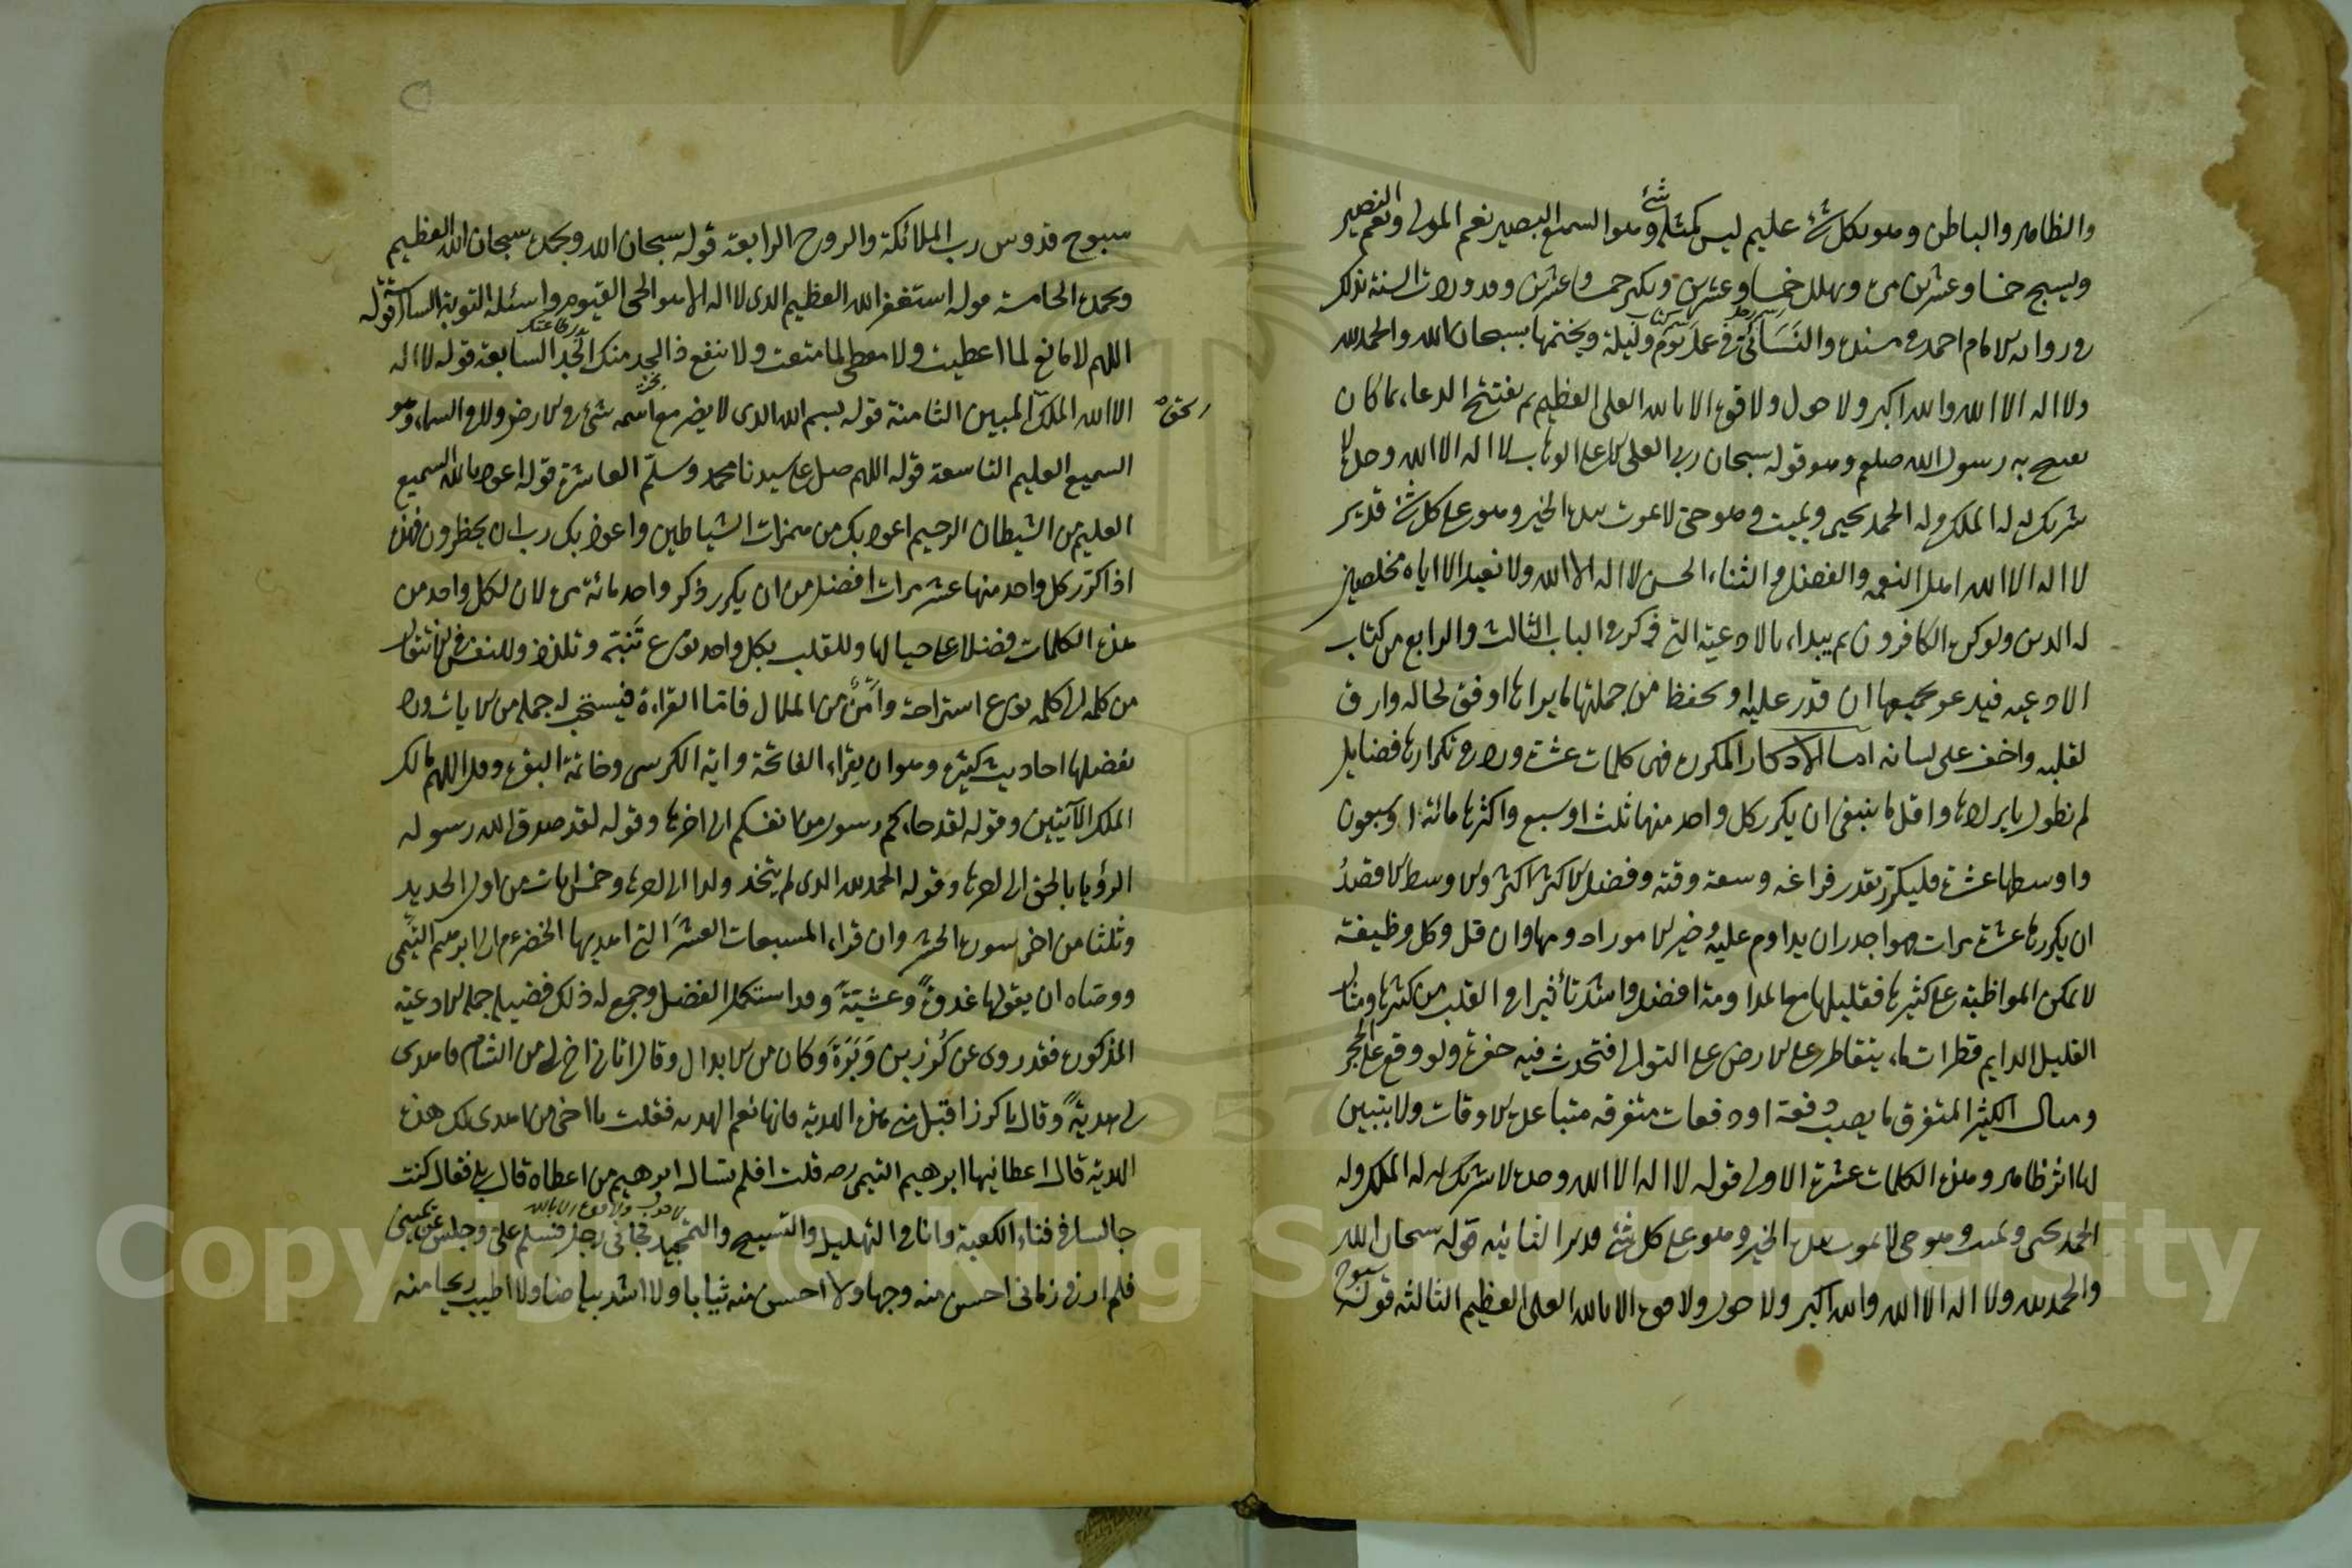 والظاهر والباطن وهو بكل شئ عليم ليس كمثله شئ وهو السميع البصير نعم المولى ونعم النصير
ويسبح خمسا وعشرين مرة ويهلل خمسا وعشرين ويكبر خمسا وعشرين وقد وردت السنة بذلك
في رواية الامام احمد في مسنده والنسائي في عمل يوم وليلة ويختمها بسبحان الله والحمد لله
ولا اله الا الله والله اكبر ولا حول ولا قوة الا بالله العلى العظيم ثم يفتتح الدعاء بما كان
يفتتح به رسول الله صلعم وهو قوله سبحان ربى العلى الاعلى الوهاب لا اله الا الله وحده لا
شريك له له الملك وله الحمد يحيى ويميت وهو حى لا يموت بيده الخير وهو على كل شئ قدير
لا اله الا الله اهل النعمة والفضل والثناء الحسن لا اله الا الله ولا نعبد الا اياه مخلصين
له الدين ولو كره الكافرون ثم يبدأ بالادعية التى ذكره في الباب الثالث والرابع من كتاب
الادعية فيدعو بجميعها ان قدر عليه او يحفظ من جملتها ما يراها اوفق لحاله وارق
لقلبه واخف على لسانه اما الاذكار المكررة فهى كلمات عشرة ورد في تكرارها فضايل
لم نطول بايرادها واقل ما ينبغى ان يكرر كل واحد منها ثلث او سبع واكثرها مائة او سبعون
واوسطها عشرة فليكرر بقدر فراغه وسعة وقته وفضل الاكثر اكثر والاوسط الاقصد
ان يكررها عشرة مرات فهو اجدر ان يداوم عليه وخير الامور ادومها وان قل وكل وظيفة
لا يمكن المواظبة على كثيرها فقليلها مع المداومة افضل واشد تأثيرا في القلب من كثيرها ومثال
القليل الدايم قطرات ماء يتقاطر على الارض على التوالى فتحدث فيه حفرة ولو وقع على الحجر
ومثال الكثير المتفرق ما يصب دفعة او دفعات متفرقه متباعدة الاوقات ولا يتبين
لها اثر ظاهر وهذه الكلمات عشرة الاولى قوله لا اله الا الله وحده لا شريك له له الملك وله
الحمد يحيى ويميت وهو حى لا يموت بيده الخير وهو على كل شئ قدير الثانيه قوله سبحان الله
والحمد لله ولا اله الا الله والله اكبر ولا حول ولا قوة الا بالله العلى العظيم الثالثه قوله سبوح
سبوح قدوس رب الملائكة والروح الرابعة قوله سبحان الله وبحمده سبحان الله العظيم
وبحمده الخامسة قوله استغفر الله العظيم الذى لا اله الا هو الحى القيوم واسئله التوبة السادسة قوله
اللهم لا مانع لما اعطيت ولا معطى لما منعت ولا ينفع ذا الجد منك الجد السابعة قوله لا اله
الا الله الملك المبين الثامنة قوله بسم الله الذى لا يضر مع اسمه شئ في الارض ولا في السماء وهو
الحق
السميع العليم التاسعة قوله اللهم صل على سيدنا محمد وسلم العاشرة قوله اعوذ بالله السميع
العليم من الشيطان الرجيم اعوذ بك من همزات الشياطين واعوذ بك رب ان يحظرون فهذه
اذا كرر كل واحد منها عشر مرات افضل من ان يكرر ذكر واحد مائة مرة لان لكل واحد من
هذه الكلمات فضلا على حيالها وللقلب بكل واحد نوع تنبه وتلذذ وللنفس في الانتقال
من كلمة الى كلمه نوع استراحة وأمن من الملال فاما القراءة فيستحب له جملة من الايات ورد
بفضلها احاديث كثيرة وهو ان يقراء الفاتحة واية الكرسى وخاتمة البقرة وقل اللهم مالك
الملك الآيتين وقوله لقد جاءكم رسول من انفسكم الى اخرها وقوله لقد صدق الله رسوله
الرؤيا بالحق الى اخرها وقوله الحمد لله الذى لم يتخذ ولدا الى اخرها وخمس ايات من اول الحديد
وثلثا من اخر سورة الحشر وان قراء المسبعات العشر التى اهديها الخضر عم الى ابرهيم التيمى
ووصاه ان يقولها غدوة وعشية وقد استكمل الفضل وجمع له ذلك فضيلة جملة الادعية
المذكورة فقد روى عن كرز بن وبرة وكان من الابدال وقال اتانى اخ لى من الشام فاهدى
لى هدية وقال يا كرز اقبل منى هذه الهدية فانها نعم الهديه فقلت يا اخى من اهدى لك هذه
الهدية قال اعطانيها ابرهيم التيمى رحه قلت افلم تسال ابرهيم من اعطاه قال بلى فقال كنت
جالسا في فناء الكعبة وانا في التهليل والتسبيح والتمجيد فجائنى رجل فسلم على وجلس عن يمينى
لا حول ولا قوة الا بالله
فلم ار في زمانى احسن منه وجها ولا احسن منه ثيابا ولا اشد بياضا ولا اطيب ريحا منه
Copyright © King Saud University
1957